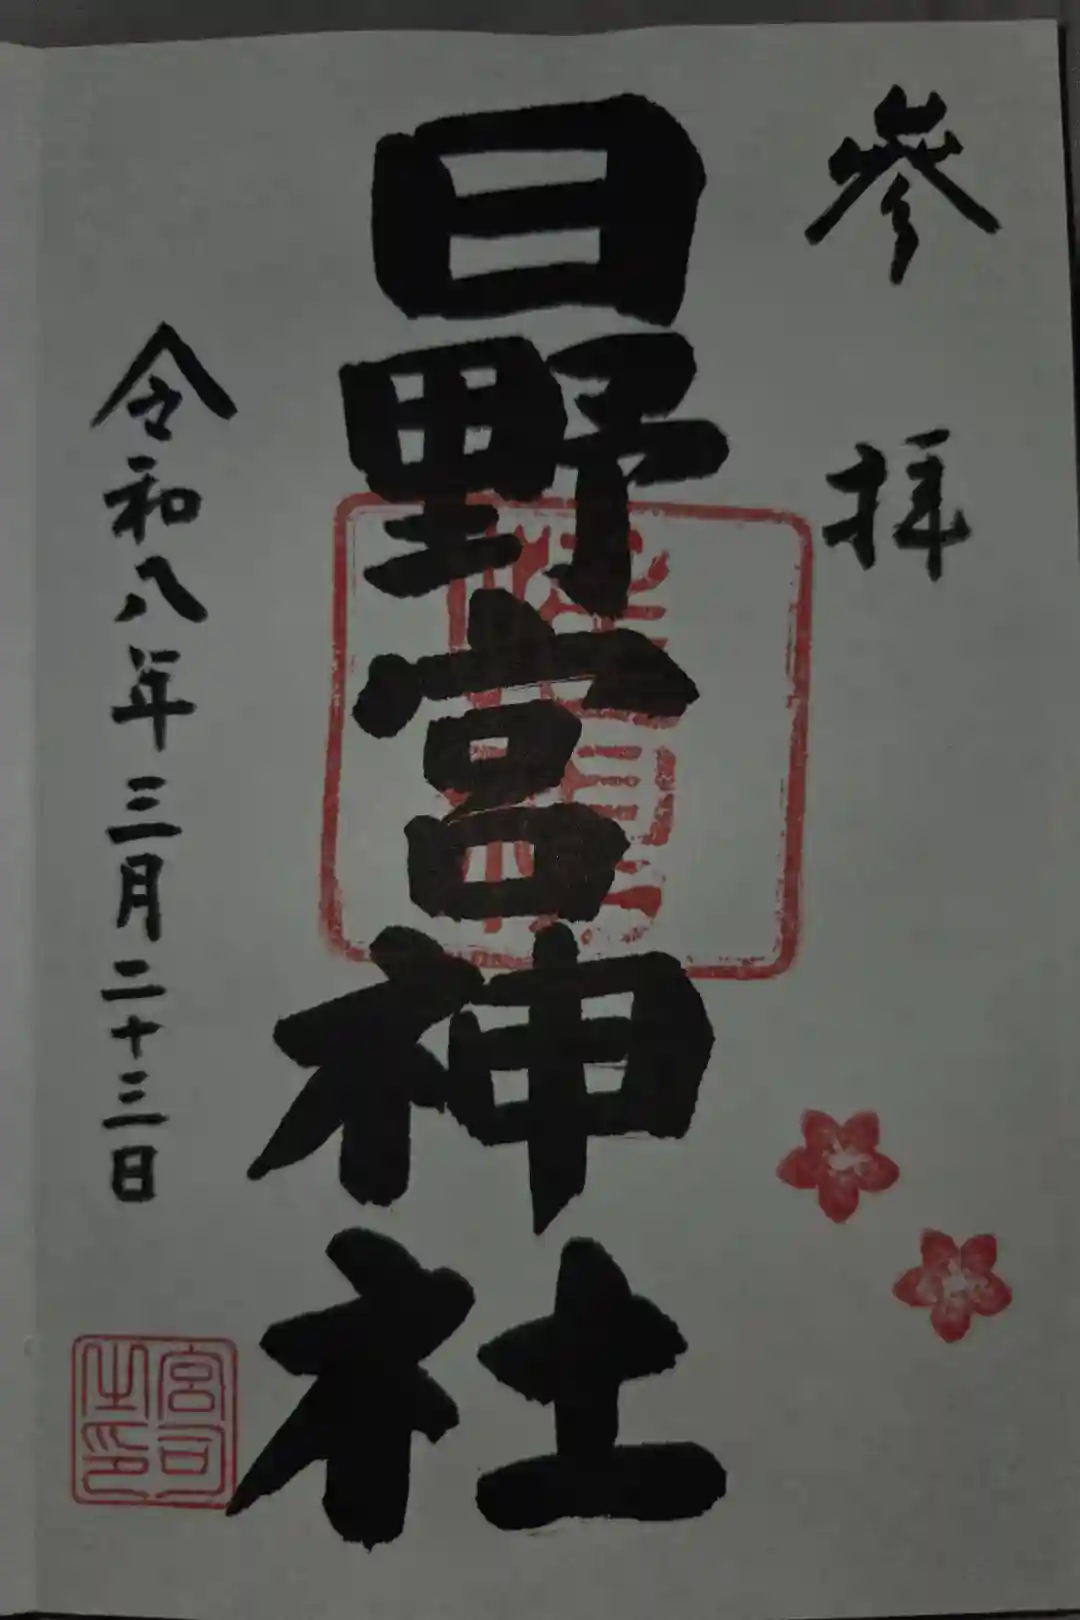 參拝
日野宮神社
令和八年三月二十三日
宮司
之印